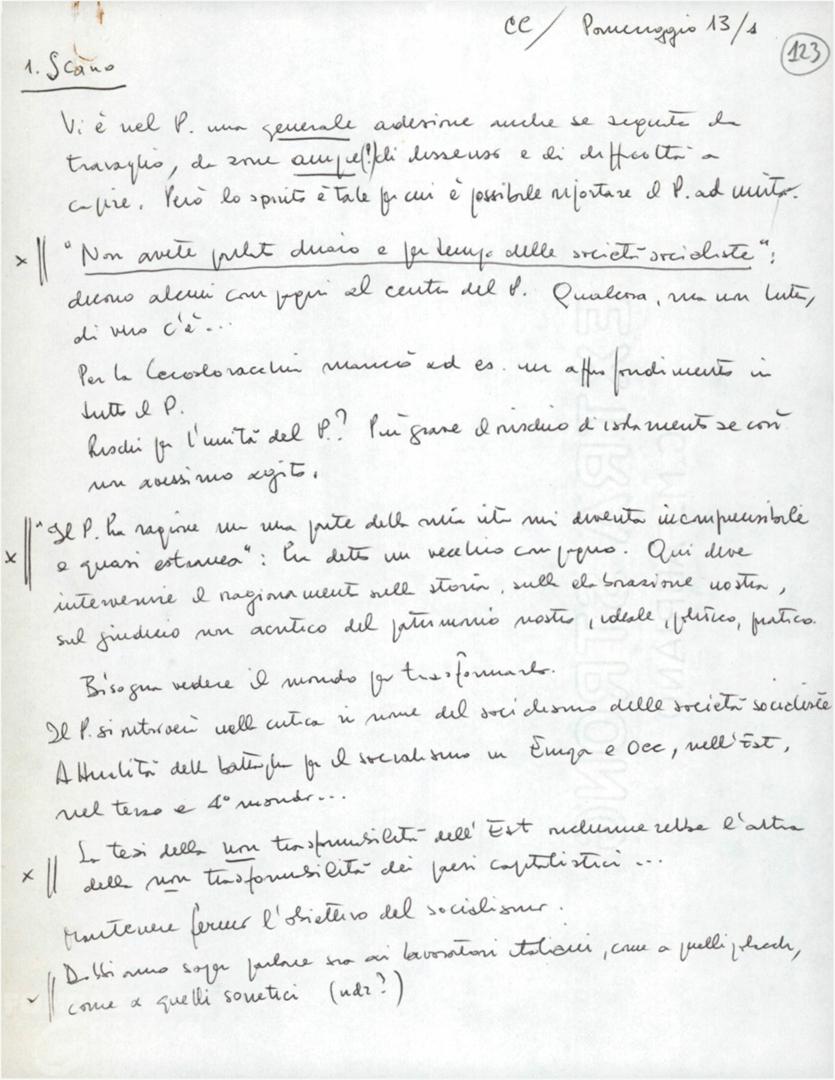 CC / Pomeriggio 13/1
123
1. Scano
Vi è nel P. una generale adesione anche se seguita da
travaglio, da zone ampie(!) di dissenso e di difficoltà a
capire. Però lo spirito è tale per cui è possibile riportare il P. ad unità.
x || "Non avete parlato chiaro e per tempo delle società socialiste":
dicono alcuni compagni al centro del P. Qualcosa, ma non tutto,
di vero c'è...
Per la Cecoslovacchia mancò ad es. un approfondimento in
tutto il P.
Rischi per l'unità del P.? Più grave il rischio di isolamento se così
non avessimo agito.
x || "Il P. ha ragione ma una parte della mia vita mi diventa incomprensibile
e quasi estranea": ha detto un vecchio compagno. Qui deve
intervenire il ragionamento sulla storia, sulla elaborazione nostra,
sul giudizio non acritico del patrimonio nostro, ideale, politico, pratico.
Bisogna vedere il mondo per trasformarlo.
Il P. si ritroverà nella critica in nome del socialismo delle società socialiste
Attualità della battaglia per il socialismo in Europa e Occ, nell'Est,
nel terzo e 4° mondo...
x || La tesi della non trasformabilità dell'Est richiamerebbe l'altra
della non trasformabilità dei paesi capitalistici ...
Mantenere fermo l'obiettivo del socialismo.
|| Dobbiamo saper parlare sia ai lavoratori italiani, come a quelli polacchi,
come a quelli sovietici (ndr?)